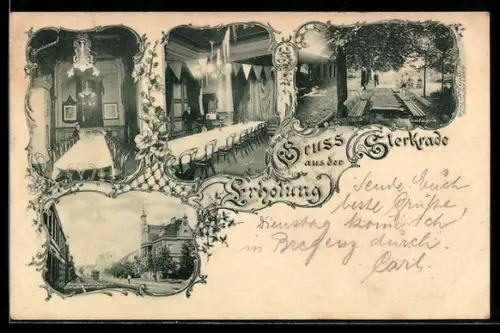 Gruss
aus der
Erholung
Sterkrade
Sende Euch
beste Grüße,
Dienstag komme ich
in Bregenz durch.
Carl.